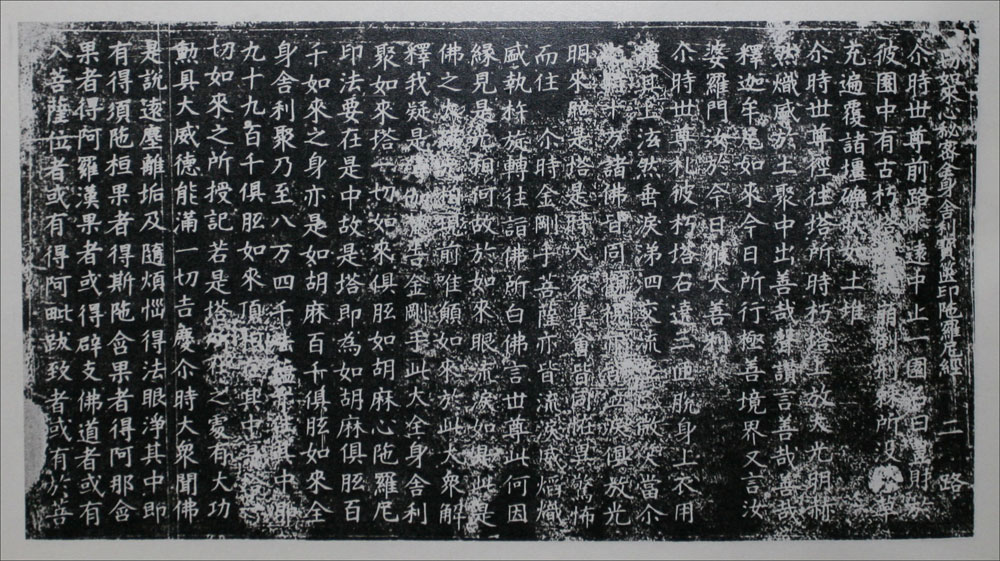 如來心秘密全身舍利寶篋印陀羅尼經 二 路
尒時世尊前路不遠中止一園名曰豐財於
彼園中有古朽塔崩倒荊棘所沒草
充遍覆諸壃礫狀如土堆
尒時世尊徑往塔所時朽塔上放大光明赫
然熾盛於土聚中出善哉聲讚言善哉善哉
釋迦牟尼如來今日所行極善境界又言汝
婆羅門汝於今日獲大善利
尒時世尊礼彼朽塔右遶三匝脫身上衣用
覆其上泫然垂淚弟四交流泣微笑當尒
時十方諸佛皆同觀視亦皆泣淚俱放光
明來照是塔是時大眾集會皆同怪異驚怖
而住 尒時金剛手菩薩亦皆流淚威焰熾
盛執杵旋轉往詣佛所白佛言世尊此何因
緣見是光相何故於如來眼流淚如是此是
佛之大瑞光相現前唯願如來於此大眾解
釋我疑是時如來告金剛手此大全身舍利
聚如來塔一切如來俱胝如胡麻心陀羅尼
印法要在是中故是塔即為如胡麻俱胝百
千如來之身亦是如胡麻百千俱胝如來全
身舍利聚乃至八万四千法蘊亦住其中即
九十九百千俱胝如來頂相在其中是塔一
切如來之所授記若是塔所在之處有大功
勳具大威德能滿一切吉慶尒時大眾聞佛
是說遠塵離垢及隨煩惱得法眼淨其中即
有得須陁桓果者得斯陁含果者得阿那含
果者得阿羅漢果者或得辟支佛道者或有
入菩薩位者或有得阿毗跋致者或有於菩